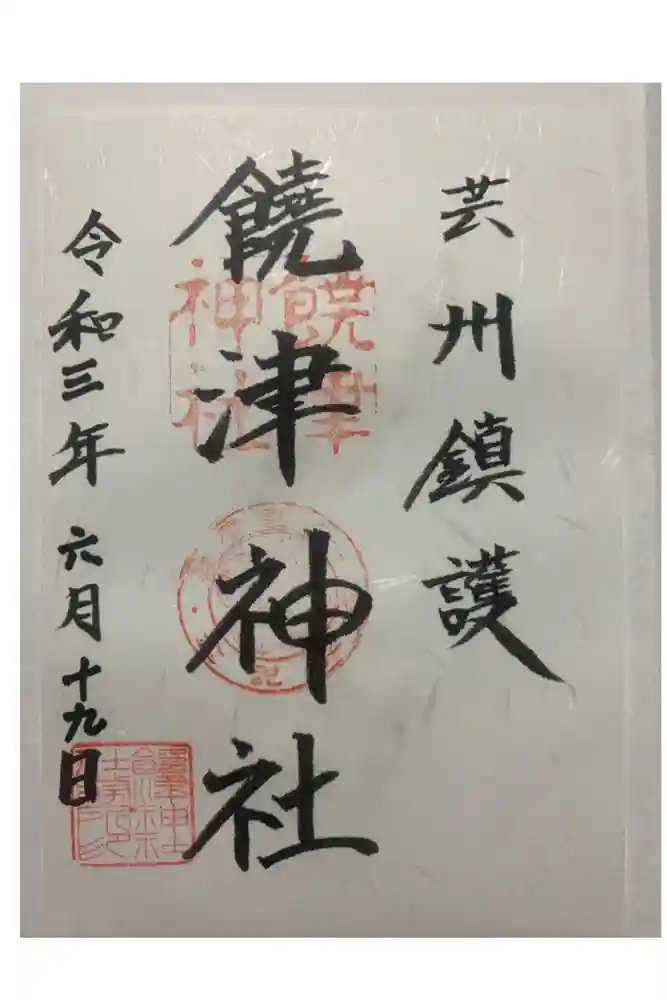 芸州鎮護
饒津神社
令和三年六月十九日
饒津
神社